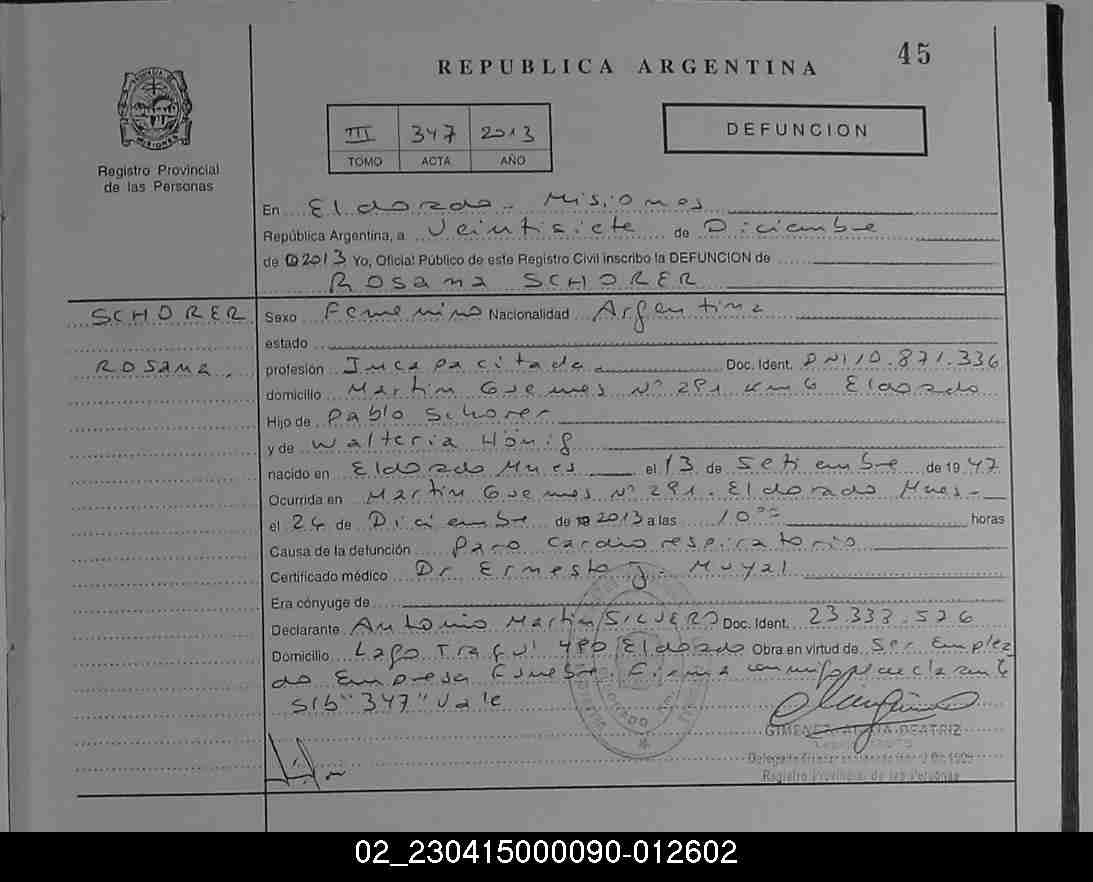 45
REPUBLICA ARGENTINA
PROVINCIA DE
MISIONES
Registro Provincial
de las Personas
III 347 2013
TOMO ACTA AÑO
DEFUNCION
En Eldorado - Misiones
República Argentina, a Veintisiete de Diciembre
de 2013 Yo, Oficial Público de este Registro Civil inscribo la DEFUNCION de
Rosana SCHORER
SCHORER
ROSANA.
Sexo Femenino Nacionalidad Argentina
estado
profesión Incapacitada Doc. Ident. DNI 10.871.336
domicilio Martin Guemes Nº 291 Km 6 Eldorado
Hijo de Pablo Schorer
y de Walteria Hönig
nacido en Eldorado Mnes el 13 de Setiembre de 1947
Ocurrida en Martin Guemes Nº 291. Eldorado Mnes-
el 24 de Diciembre de 2013 a las 10ºº horas
Causa de la defunción Paro cardiorespiratorio
Certificado médico Dr Ernesto J. Muyal
Era cónyuge de
Declarante Antonio Martin SILVERO Doc. Ident. 23.333.526
Domicilio Lago Traful 480 Eldorado Obra en virtud de Ser Emplea
do Empresa Funebre. Firma
S/b "347" Vale
GIMENEZ BEATRIZ
Registro Provincial de las Personas
02_230415000090-012602